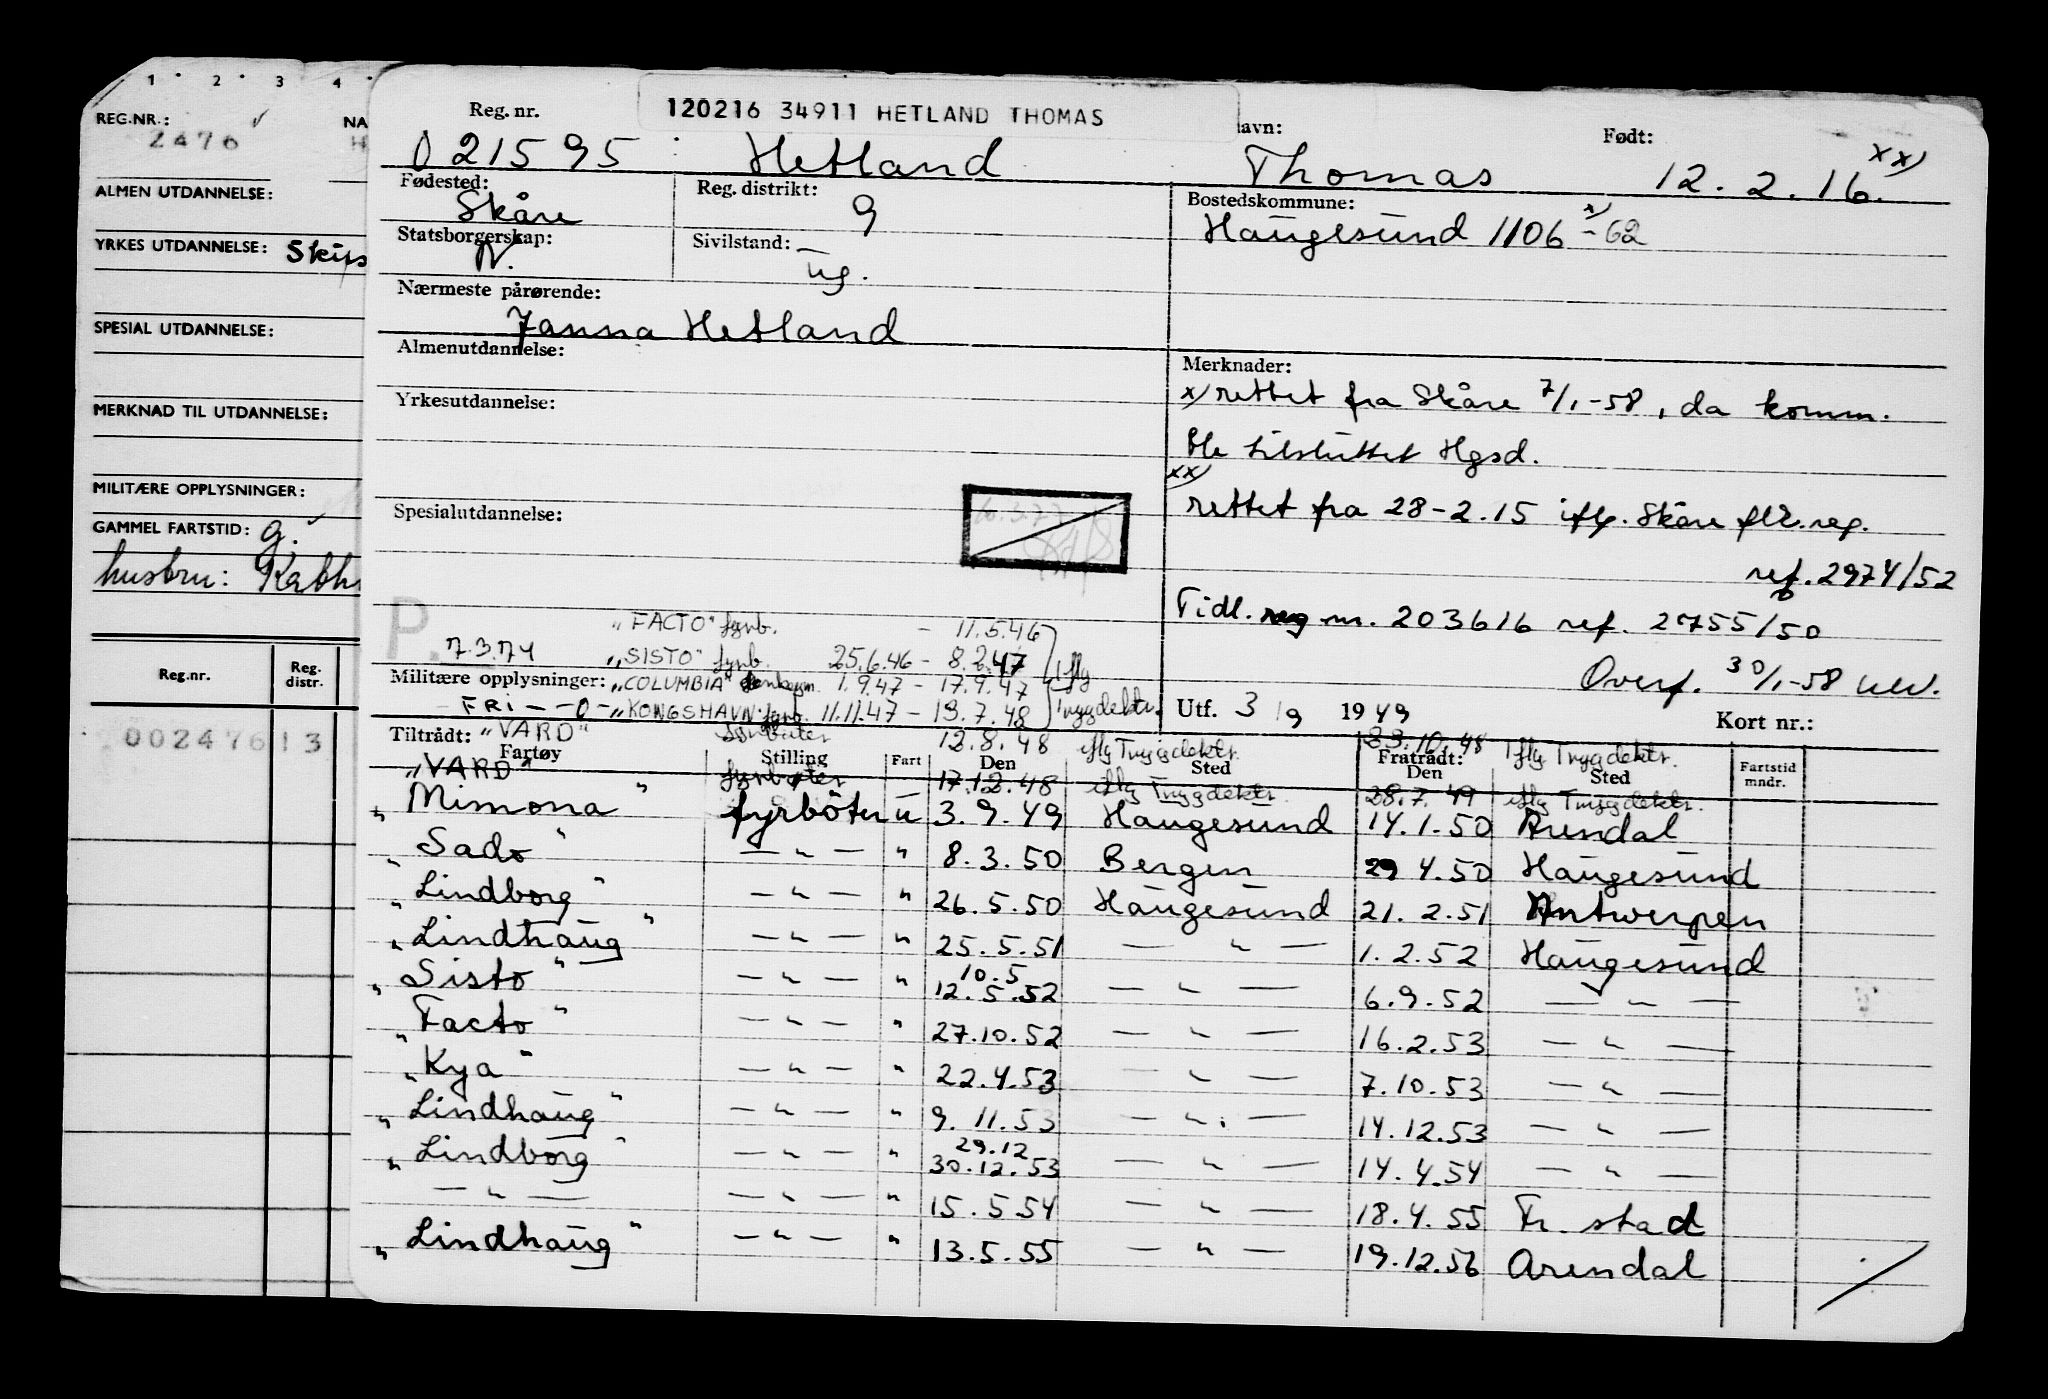 1 2 3 4
REG.NR.: NA
2476 H
ALMEN UTDANNELSE:
YRKES UTDANNELSE: Skips
SPESIAL UTDANNELSE:
MERKNAD TIL UTDANNELSE:
MILITÆRE OPPLYSNINGER:
GAMMEL FARTSTID: g.
husbru: Kath
Reg.nr. Reg. distr.
002476 13
120216 34911 HETLAND THOMAS
Reg. nr. avn: Født:
021595 Hetland Thomas 12.2.16. xx)
Fødested: Reg. distrikt: Bostedskommune:
Skåre 9 Haugesund 1106 x) - 62
Statsborgerskap: Sivilstand:
N. ug.
Nærmeste pårørende:
Janna Hetland
Almenutdannelse: Merknader:
x) rettet fra Skåre 7/1-58, da komm.
Yrkesutdannelse:
ble tilsluttet Hgsd.
xx)
Spesialutdannelse: rettet fra 28-2.15 iflg. Skåre flk.reg.
ref. 2974/52
P. Tidl. reg nr. 203616 ref. 2755/50
"FACTO" fyrb. - 11.5.46
7.3.74 "SISTO" fyrb. 25.6.46 - 8.2.47 iflg
Overf. 30/1-58
Militære opplysninger: "COLUMBIA" 1.9.47 - 17.9.47
FRI - - 0 - "KONGSHAVN" fyrb. 11.11.47 - 19.7.48 Trygdektr.
Utf. 3/9 1949 Kort nr.:
Tiltrådt: "VARD" fyrbøter 12.8.48 iflg Trygdektr. 23.10.48 iflg Trygdektr.
Fartøy Stilling Fart Den Sted Fratrådt: Den Sted Fartstid mndr.
"VARD" fyrbøter 17.12.48 iflg Trygdektr. 28.7.49 iflg Trygdektr.
"Mimona" fyrböter u 3.9.49 Haugesund 14.1.50 Arendal
"Sado" — " — " 8.3.50 Bergen 29 4.50 Haugesund
"Lindborg" — " — " 26.5.50 Haugesund 21.2.51 Antwerpen
"Lindhaug" — " — " 25.5.51 — " — 1.2.52 Haugesund
"Sisto" — " — " 10.5 12.5.52 — " — 6.9.52 — " —
"Facto" — " — " 27.10.52 — " — 16.2.53 — " —
"Kya" — " — " 22.4.53 — " — 7.10.53 — " —
"Lindhaug" — " — " 9.11.53 — " — 14.12.53 — " —
"Lindborg" — " — " 29.12 30.12.53 — " — 14.4.54 — " —
— " — — " — " 15.5.54 — " — 18.4.55 Fr. stad
"Lindhaug" — " — " 13.5.55 — " — 19.12.56 Arendal